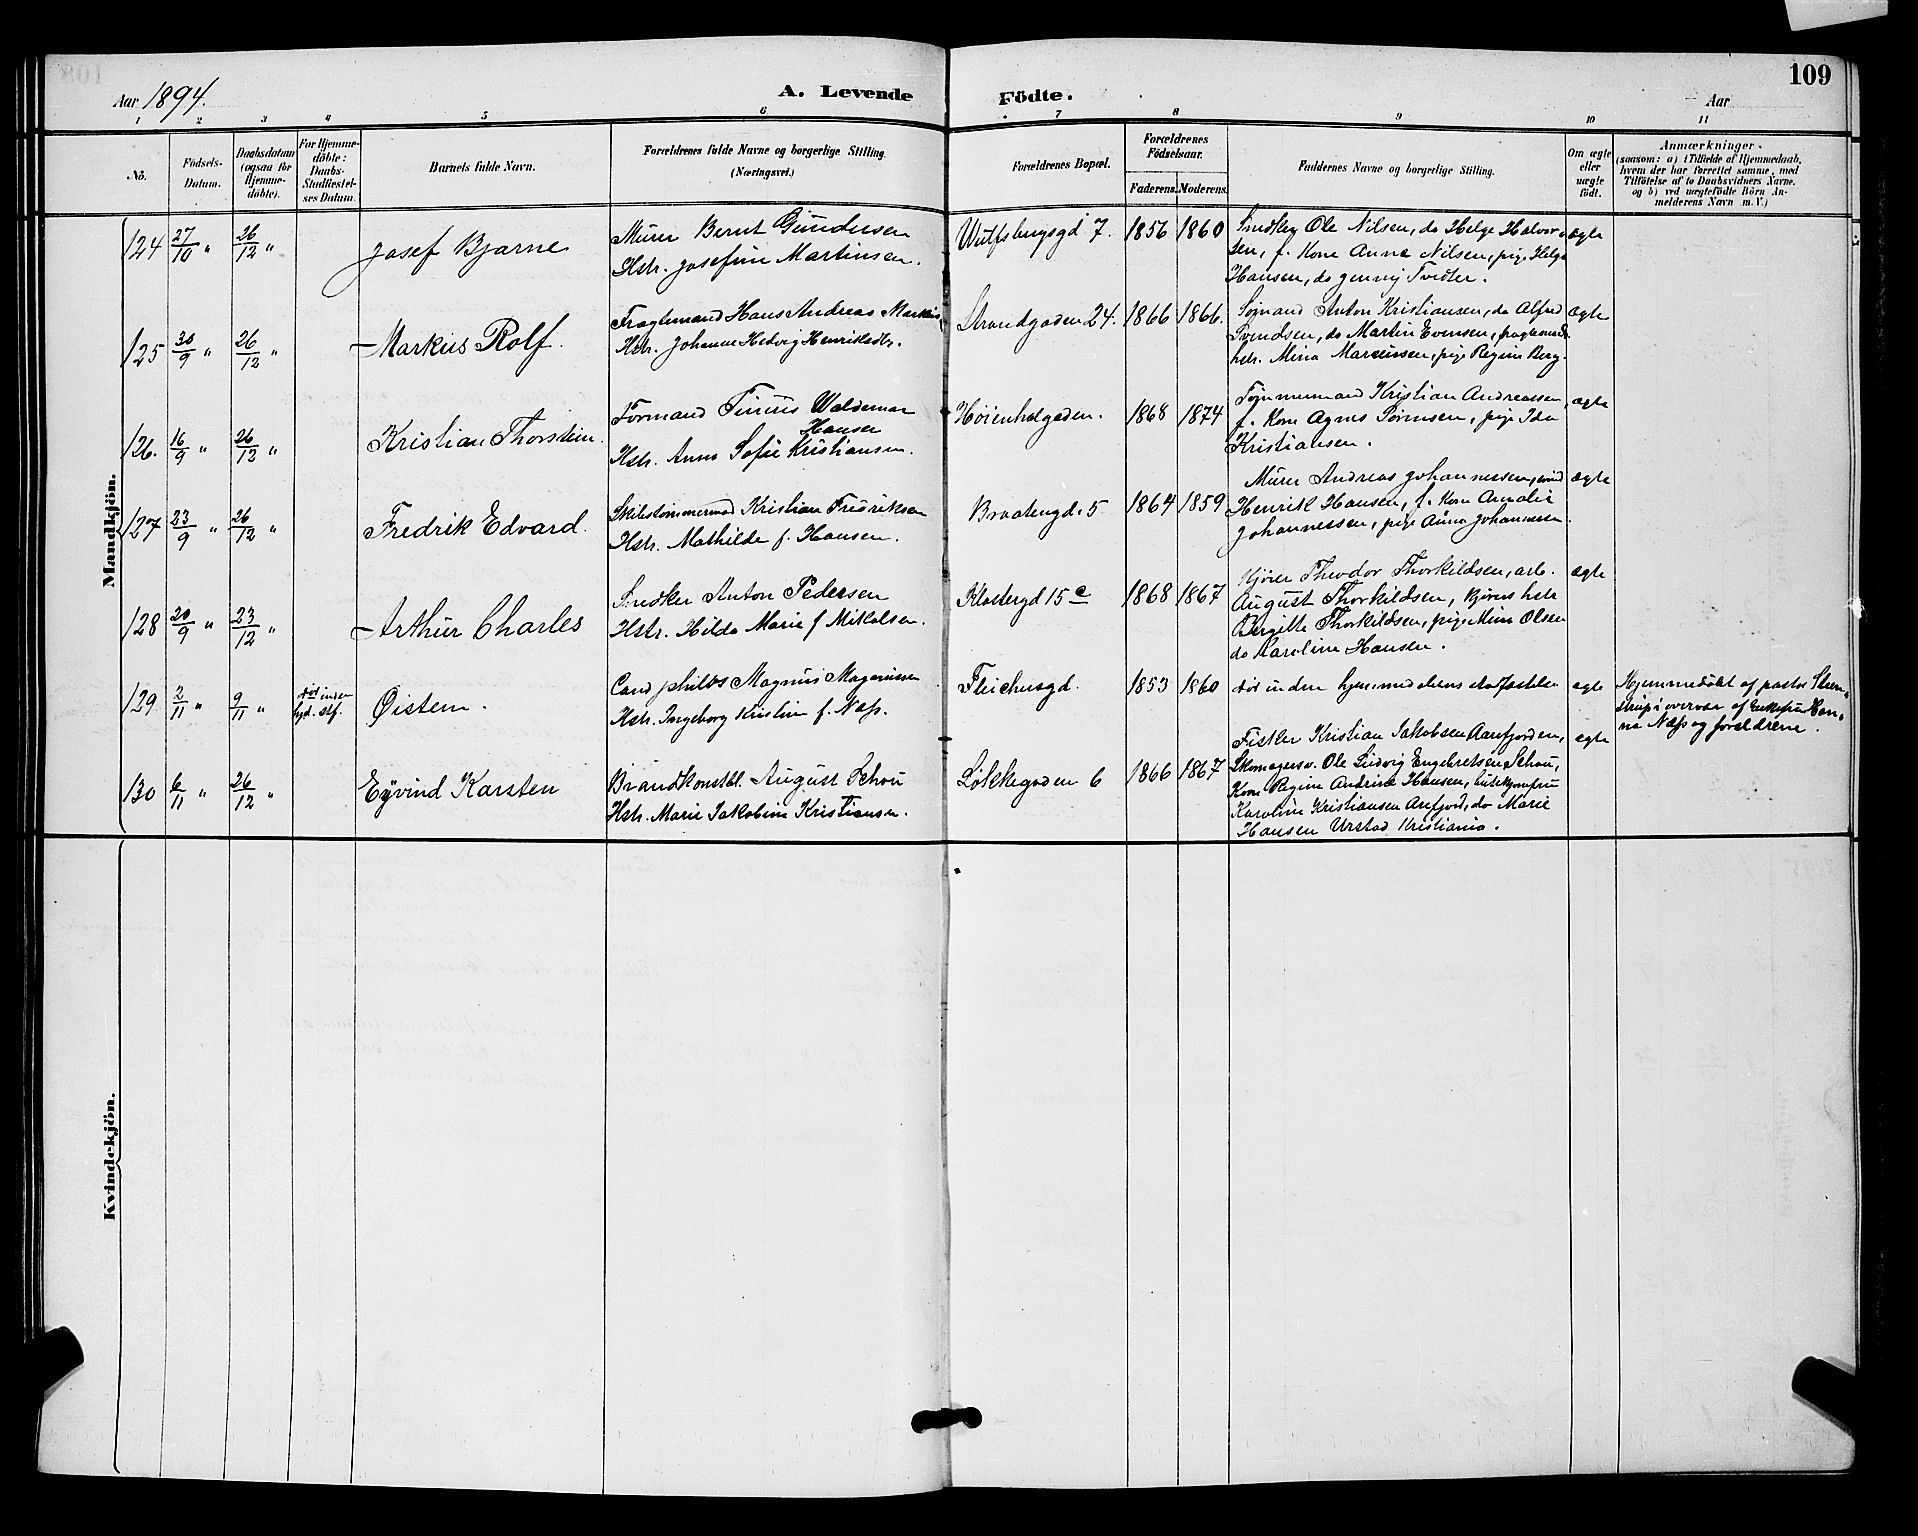 109
Aar 1894.
A. Levende
Födte.
Aar
1 2 3 4 5 6 7 8 9 10 11
No.
Födsels-
Datum.
Daabsdatum
(ogsaa for
Hjemme-
döbte).
For Hjemme-
döbte:
Daabs-
Stadfæstel-
ses Datum.
Barnets fulde Navn.
Forældrenes fulde Navne og borgerlige Stilling.
(Næringsvei.)
Forældrenes Bopæl.
Forældrenes
Födselsaar.
Faderens.
Moderens.
Faddernes Navne og borgerlige Stilling.
Om ægte
eller
uægte
födt.
Anmærkninger.
(saasom: a) i Tilfælde af Hjemmedaab,
hvem der har forrettet samme, med
Tilföielse af to Daabsvidners Navne.
og b) ved uægtefödte Börn An-
melderens Navn m. V.)
Mandkjön.
124 27/10 " 26/12 "
Josef Bjarne
Murer Bernt Gundersen
Hstr. Josefine Martinsen.
Wulfsbergsgd 7.
1856 1860
Snedker Ole Nilsen, do Helge Halvor-
sen, f. Kone Anne Nilsen, pige Helga
Hansen, do Jenny Tvedter.
ægte
125 30/9 " 26/12 "
Markus Rolf.
Fragtemand Hans Andreas Markus
Hstr. Johanne Hedvig Henriksdtr.
Strandgaden 24.
1866 1866.
Sømand Anton Kristiansen, do Alfred
Svendsen, do Martin Evensen, fragtemands
hstr. Mina Marcussen, pige Regine Berg.
ægte
126. 16/9 " 26/12 "
Kristian Thorstein.
Formand Waldemar
Hansen
Hstr. Anna Sofie Kristiansen.
Høienhalgaden.
1868 1874
Tømmermand Kristian Andreassen,
f. Kone Agnes Sørensen, pige Ida
Kristiansen.
ægte
127 23/9 " 26/12 "
Fredrik Edvard.
Skibstømmermd Kristian Fredriksen
Hstr. Mathilde f. Hansen.
Braatengd. 5
1864 1859
Murer Andreas Johannessen,
Henrik Hansen, f. Kone Amalie
Johannessen, pige Anna Johannessen.
ægte
128 20/9 " 23/12 "
Arthur Charles
Snedker Anton Pedersen
Hstr. Hilda Marie f Mikalsen.
Klostergd 15 c
1868 1867
Kjører Theodor Thorkildsen, arb.
August Thorkildsen, kjørers hstr
Bergitte Thorkildsen, pige Mina Olsen
do Karoline Hansen.
ægte
129 2/11 " 9/11 "
død inden
hjd. stf.
Øistein.
Cand philos Magnus Magnussen
Hstr. Ingeborg Kristine f. Næss.
Fleichusgd.
1853 1860
død inden hjemmedaabens stadfæstelse
ægte
Hjemmedøbt af pastor Steen-
strup i overvær af Enkefru Han-
na Næss og forældrene.
130 6/11 " 26/12 "
Eyvind Karsten
Brandkonstbl. August Schou
Hstr. Marie Jakobine Kristiansen.
Løkkegaden 6
1866 1867
Fisker Kristian Jakobsen Aarefjorden,
Skomagersv. Ole Ludvig Engebretsen Schou,
Kone Regine Andrine Hansen, butikjomfru
Karoline Kristiansen Arefjord, do Marie
Hansen Urstad Kristiania.
ægte
Kvindekjön.